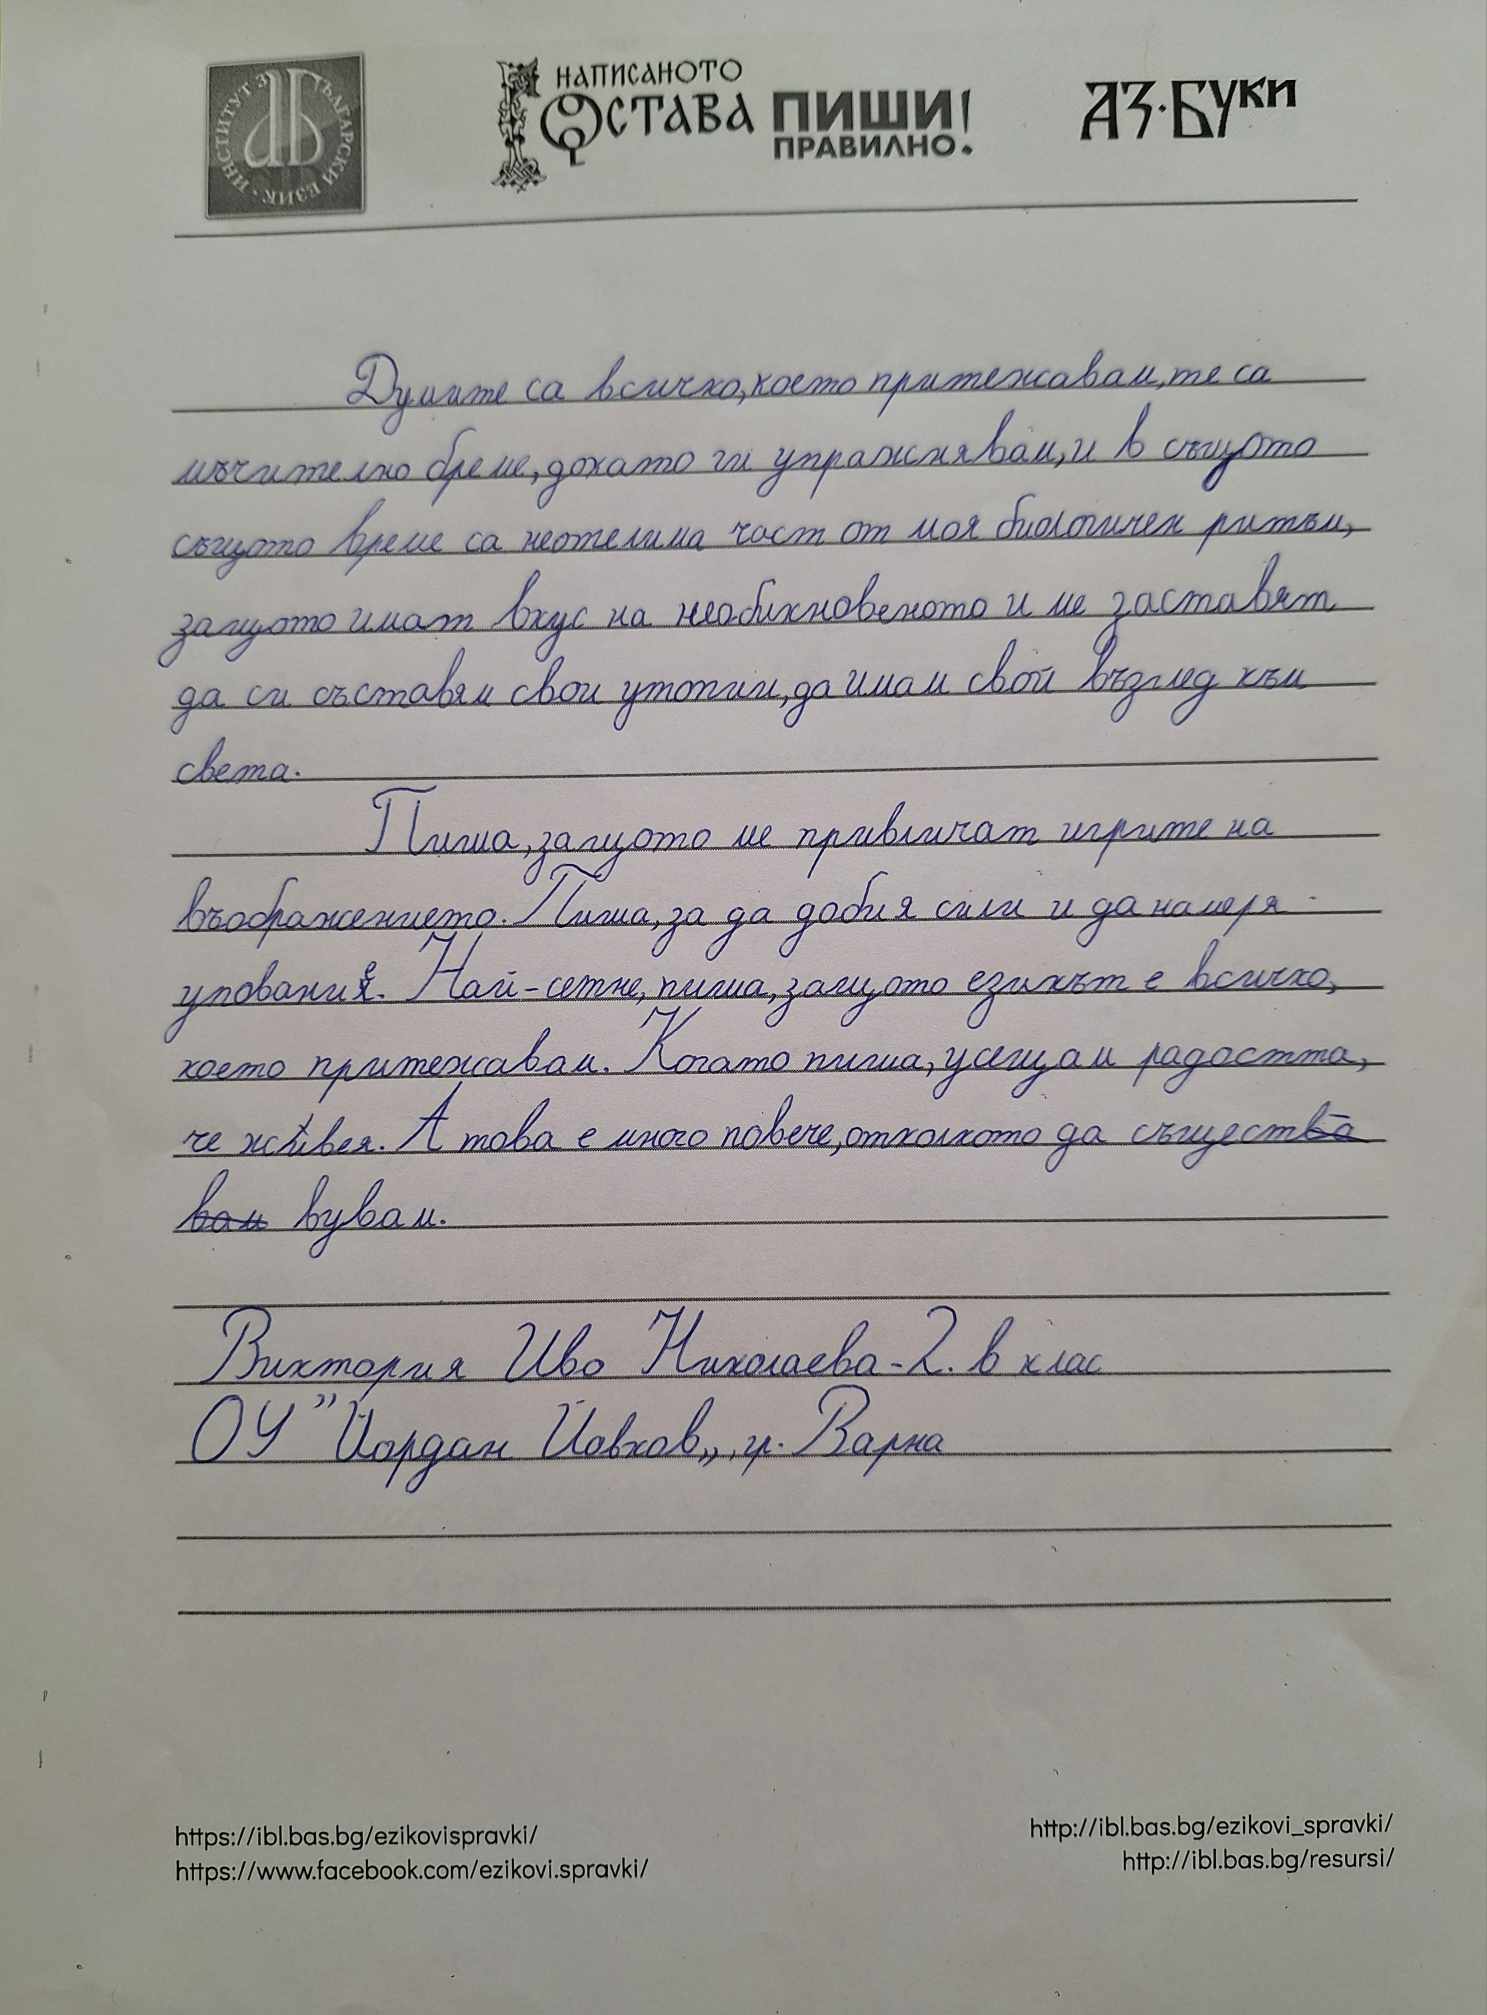 ИНСТИТУТ ЗА БЪЛГАРСКИ ЕЗИК
НАПИСАНОТО
ОСТАВА ПИШИ!
ПРАВИЛНО.
АЗ·БУКИ
Думите са всичко, което притежавам, те са
мъчително бреме, докато ги упражнявам, и в същото
същото време са неотелима част от моя биологичен ритъм,
защото имат вкус на необикновеното и ме заставят
да си съставям свои утопии, да имам свой възглед към
света.
Пиша, защото ме привличат игрите на
въображението. Пиша, за да добия сили и да намеря
упование. Най-сетне, пиша, защото езикът е всичко,
което притежавам. Когато пиша, усещам радостта,
че живея. А това е много повече, отколкото да същества
вам вувам.
Виктория Иво Николаева - 2. в клас
ОУ "Йордан Йовков„, гр. Варна
https://ibl.bas.bg/ezikovispravki/
https://www.facebook.com/ezikovi.spravki/
http://ibl.bas.bg/ezikovi_spravki/
http://ibl.bas.bg/resursi/